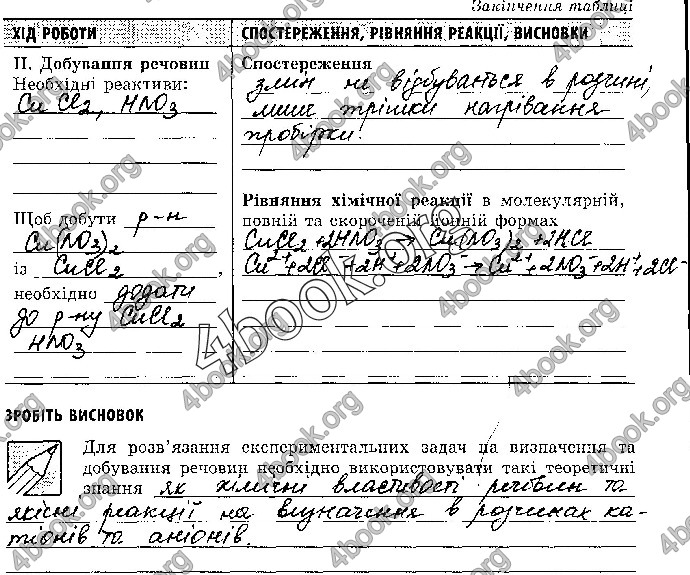 Закінчення таблиці
ХІД РОБОТИ
СПОСТЕРЕЖЕННЯ, РІВНЯННЯ РЕАКЦІЇ, ВИСНОВКИ
ІІ. Добування речовин
Необхідні реактиви:
CuCl2, HNO3
Щоб добути р-н
Cu(NO3)2
із CuCl2,
необхідно додати
до р-ну CuCl2
HNO3
Спостереження
змін не відбувається в розчині,
лише трішки нагрівання
пробірки.
Рівняння хімічної реакції в молекулярній,
повній та скороченій йонній формах
CuCl2 + 2HNO3 → Cu(NO3)2 + 2HCl
Cu2+ + 2Cl- + 2H+ + 2NO3- → Cu2+ + 2NO3- + 2H+ + 2Cl-
ЗРОБІТЬ ВИСНОВОК
Для розв'язання експериментальних задач на визначення та
добування речовин необхідно використовувати такі теоретичні
знання як хімічні властивості речовин та
якісні реакції на визначення в розчинах ка-
тіонів та аніонів.
4book.org